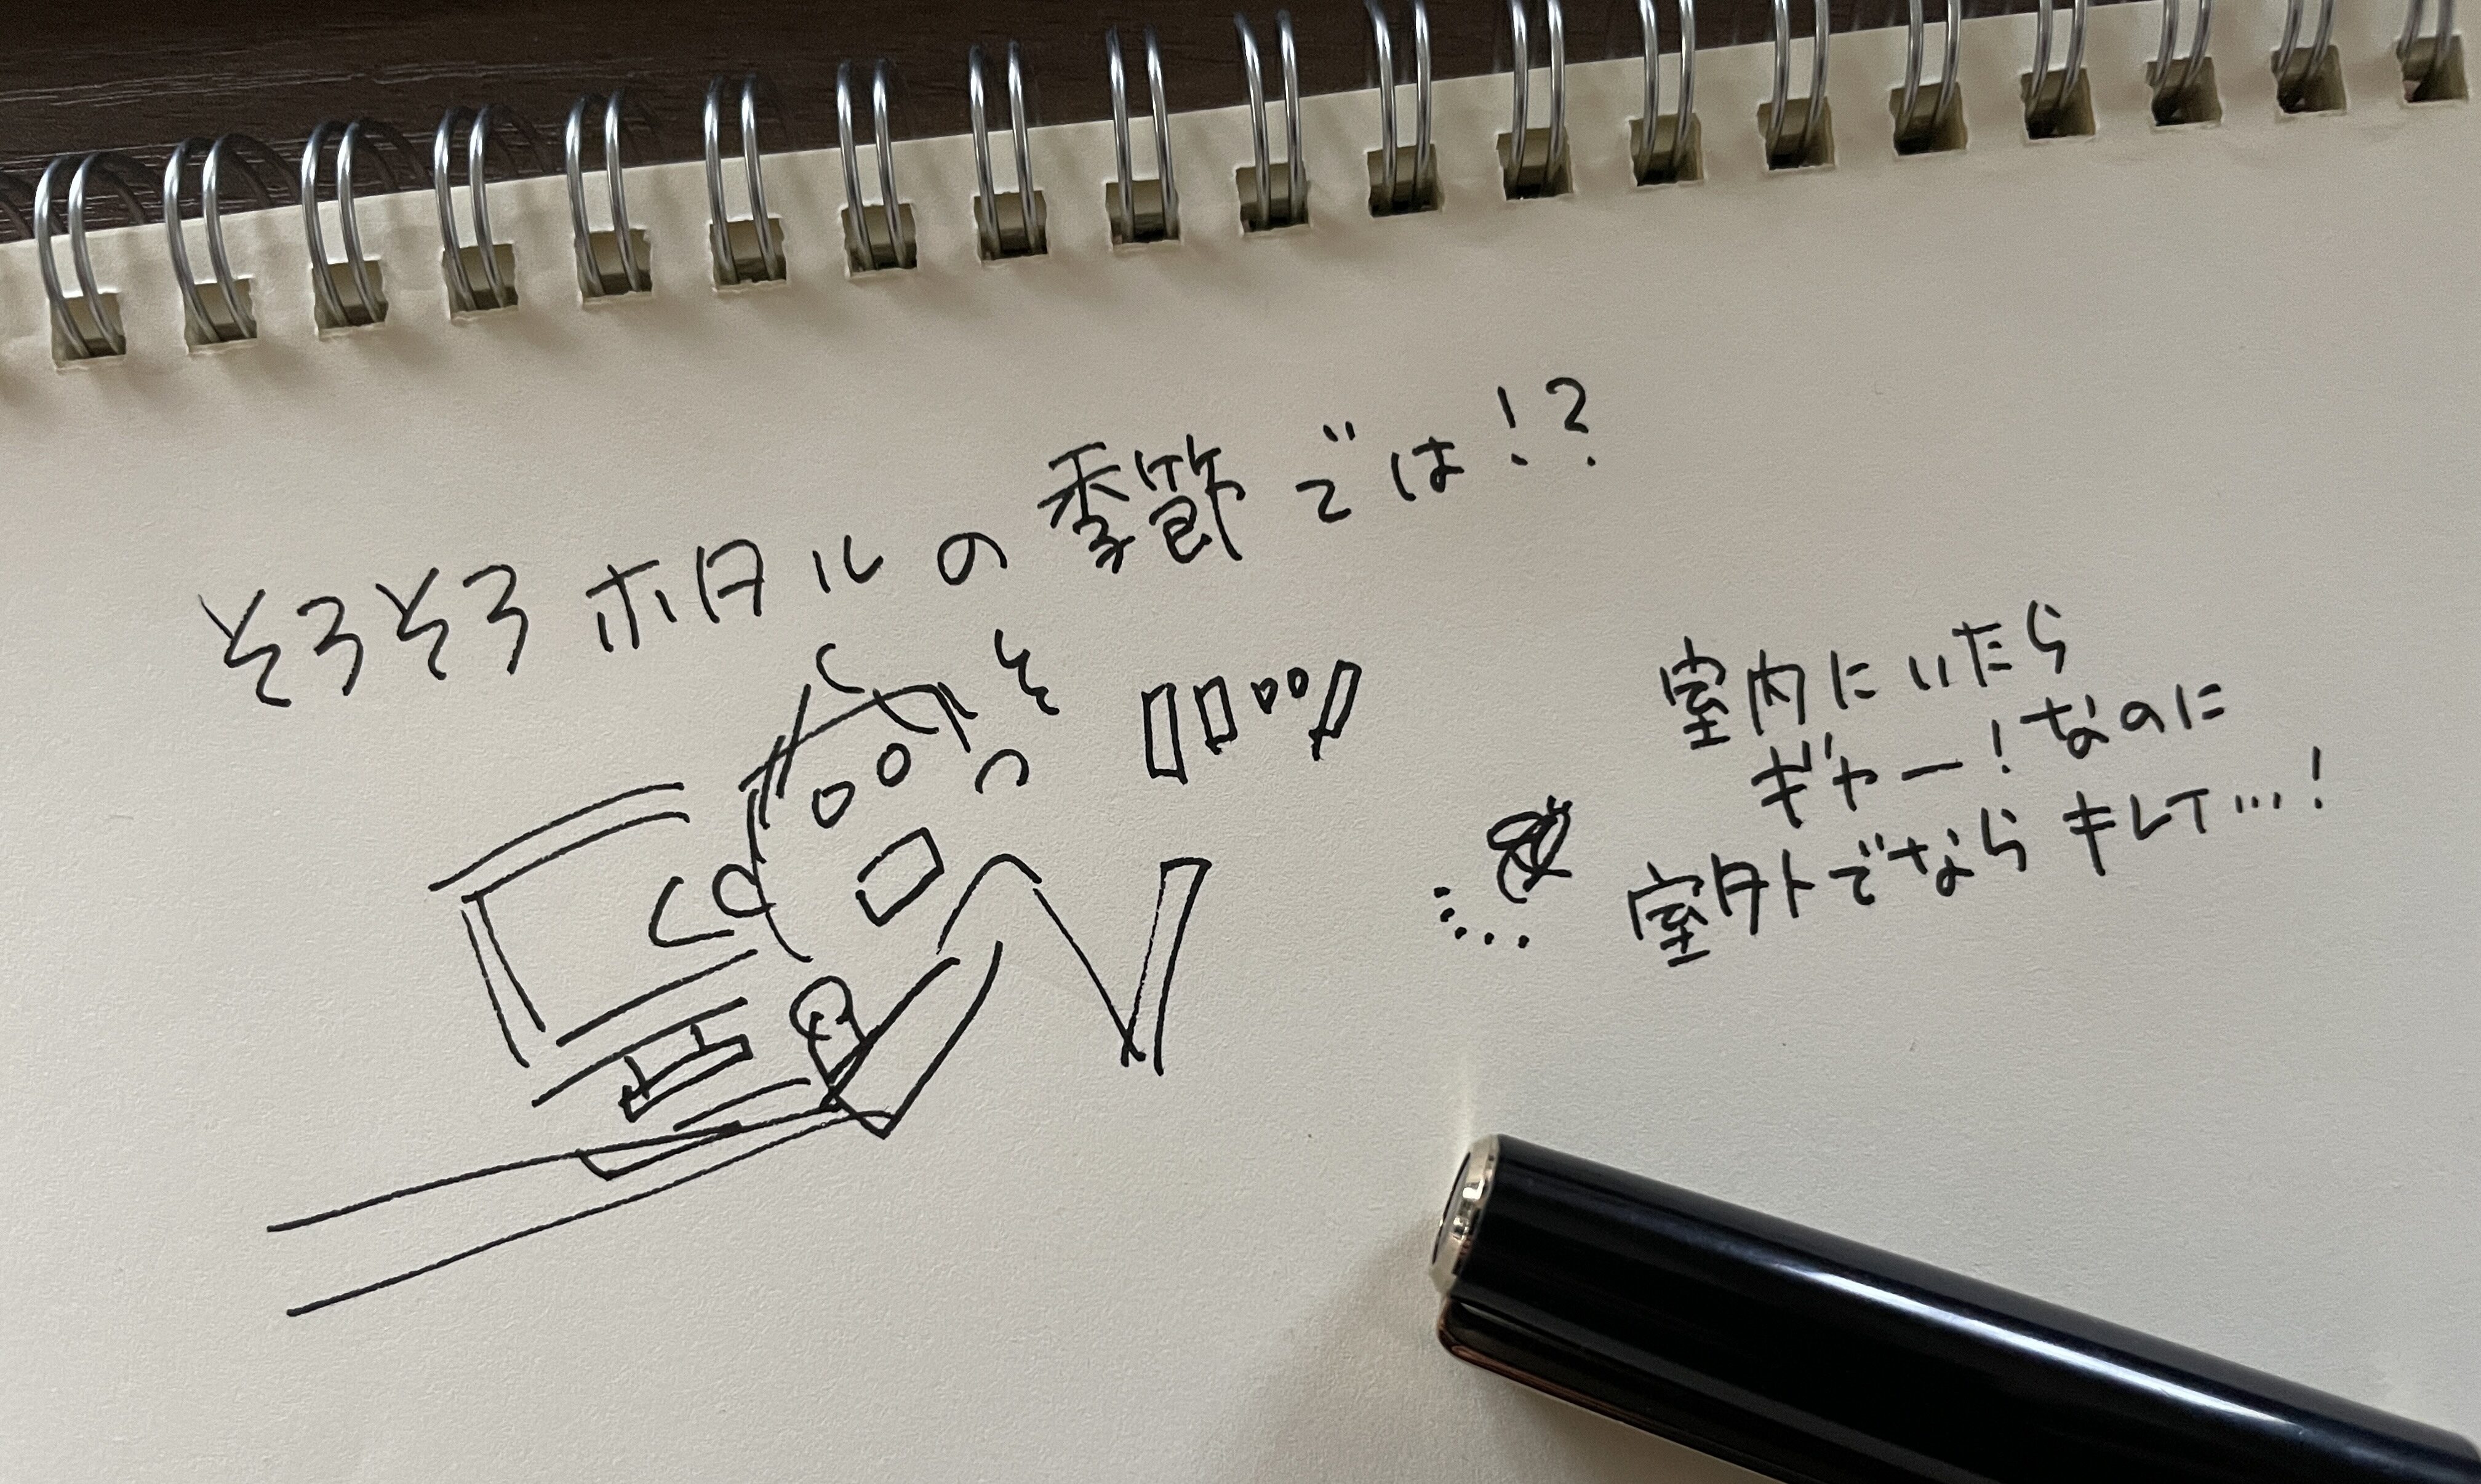 そろそろホタルの季節では!?
ハッ
室内にいたら
ギャー!なのに
室外でならキレイ…!